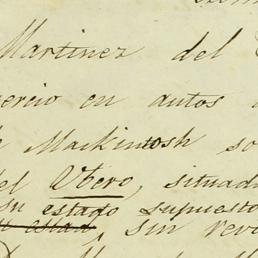 Martinez del
ercio en autos
Mackintosh so
el Ubero, situad
su estado supuesto
sin rev